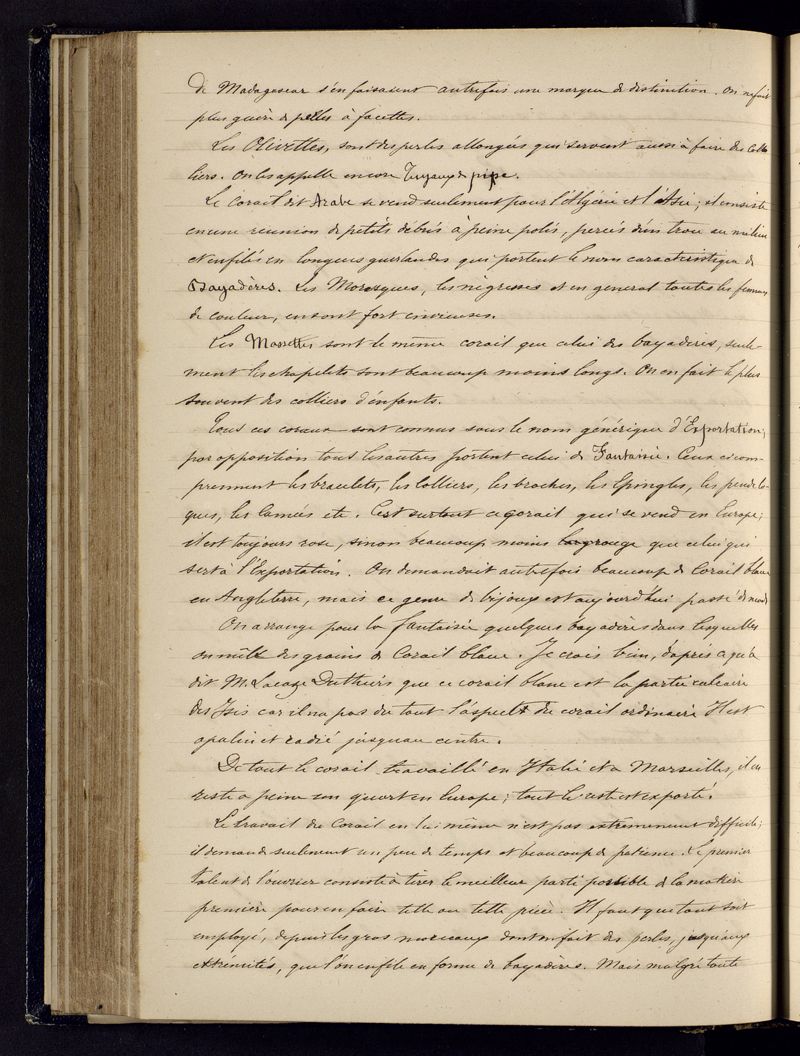 de Madagascar s'en faisaient autrefois une marque de distinction. On ne fait
plus guère de perles à facettes.
Les Olivettes, sont des perles allongées qui servent aussi à faire des Col-
liers. On les appelle encore Tuyaux de pipe.
Le corail dit Arabe se vend seulement pour l'Algérie et l'Asie; il consiste
en une reunion de petits débris à peine polis, percés d'un trou au milieu
et enfilés en longues guirlandes qui portent le nom caracteristique de
Bayadères. Les Moresques, les négresses et en general toutes les femmes
de couleur, en sont fort envieuses.
Les Massettes sont le même corail que celui des bayadères, seule-
ment les chapelets sont beaucoup moins longs. On en fait le plus
souvent des colliers d'enfants.
Tous ces coraux sont connus sous le nom générique d'Exportation;
par opposition tous les autres portent celui de Fantaisie. Ceux ci com-
prennent les bracelets, les Colliers, les broches, les Epingles, les pendelo-
ques, les Camées etc. C'est surtout ce corail qui se vend en Europe;
il est toujours rose, sinon beaucoup moins rouge que celui qui
sert à l'Exportation. On demandait autrefois beaucoup de Corail blanc
en Angleterre, mais ce genre de bijoux est aujourd'hui passé de mode
On arrange pour la fantaisie quelques bayadères dans lesquelles
on mêle des grains de Corail blanc. Je crois bien, d'après ce qu'a
dit M. Lacaze Duthiers que ce corail blanc est la partie calcaire
des Isis car il n'a pas du tout l'aspect du corail ordinaire Il est
opalin et radié jusqu'au centre.
De tout le corail travaillé en Italie et à Marseilles, il en
reste à peine son quart en Europe; tout le reste est exporté.
Le travail du Corail en lui même n'est pas extremement difficile;
il demande seulement un peu de temps et beaucoup de patience. Le premier
talent de l'ouvrier consiste à tirer le meilleur parti possible de la matière
première pour en faire telle ou telle pièce. Il faut que tout soit
employé, depuis les gros morceaux dont on fait des perles, jusqu'aux
extrémités, que l'on enfile en forme de bayadères. Mais malgré toute